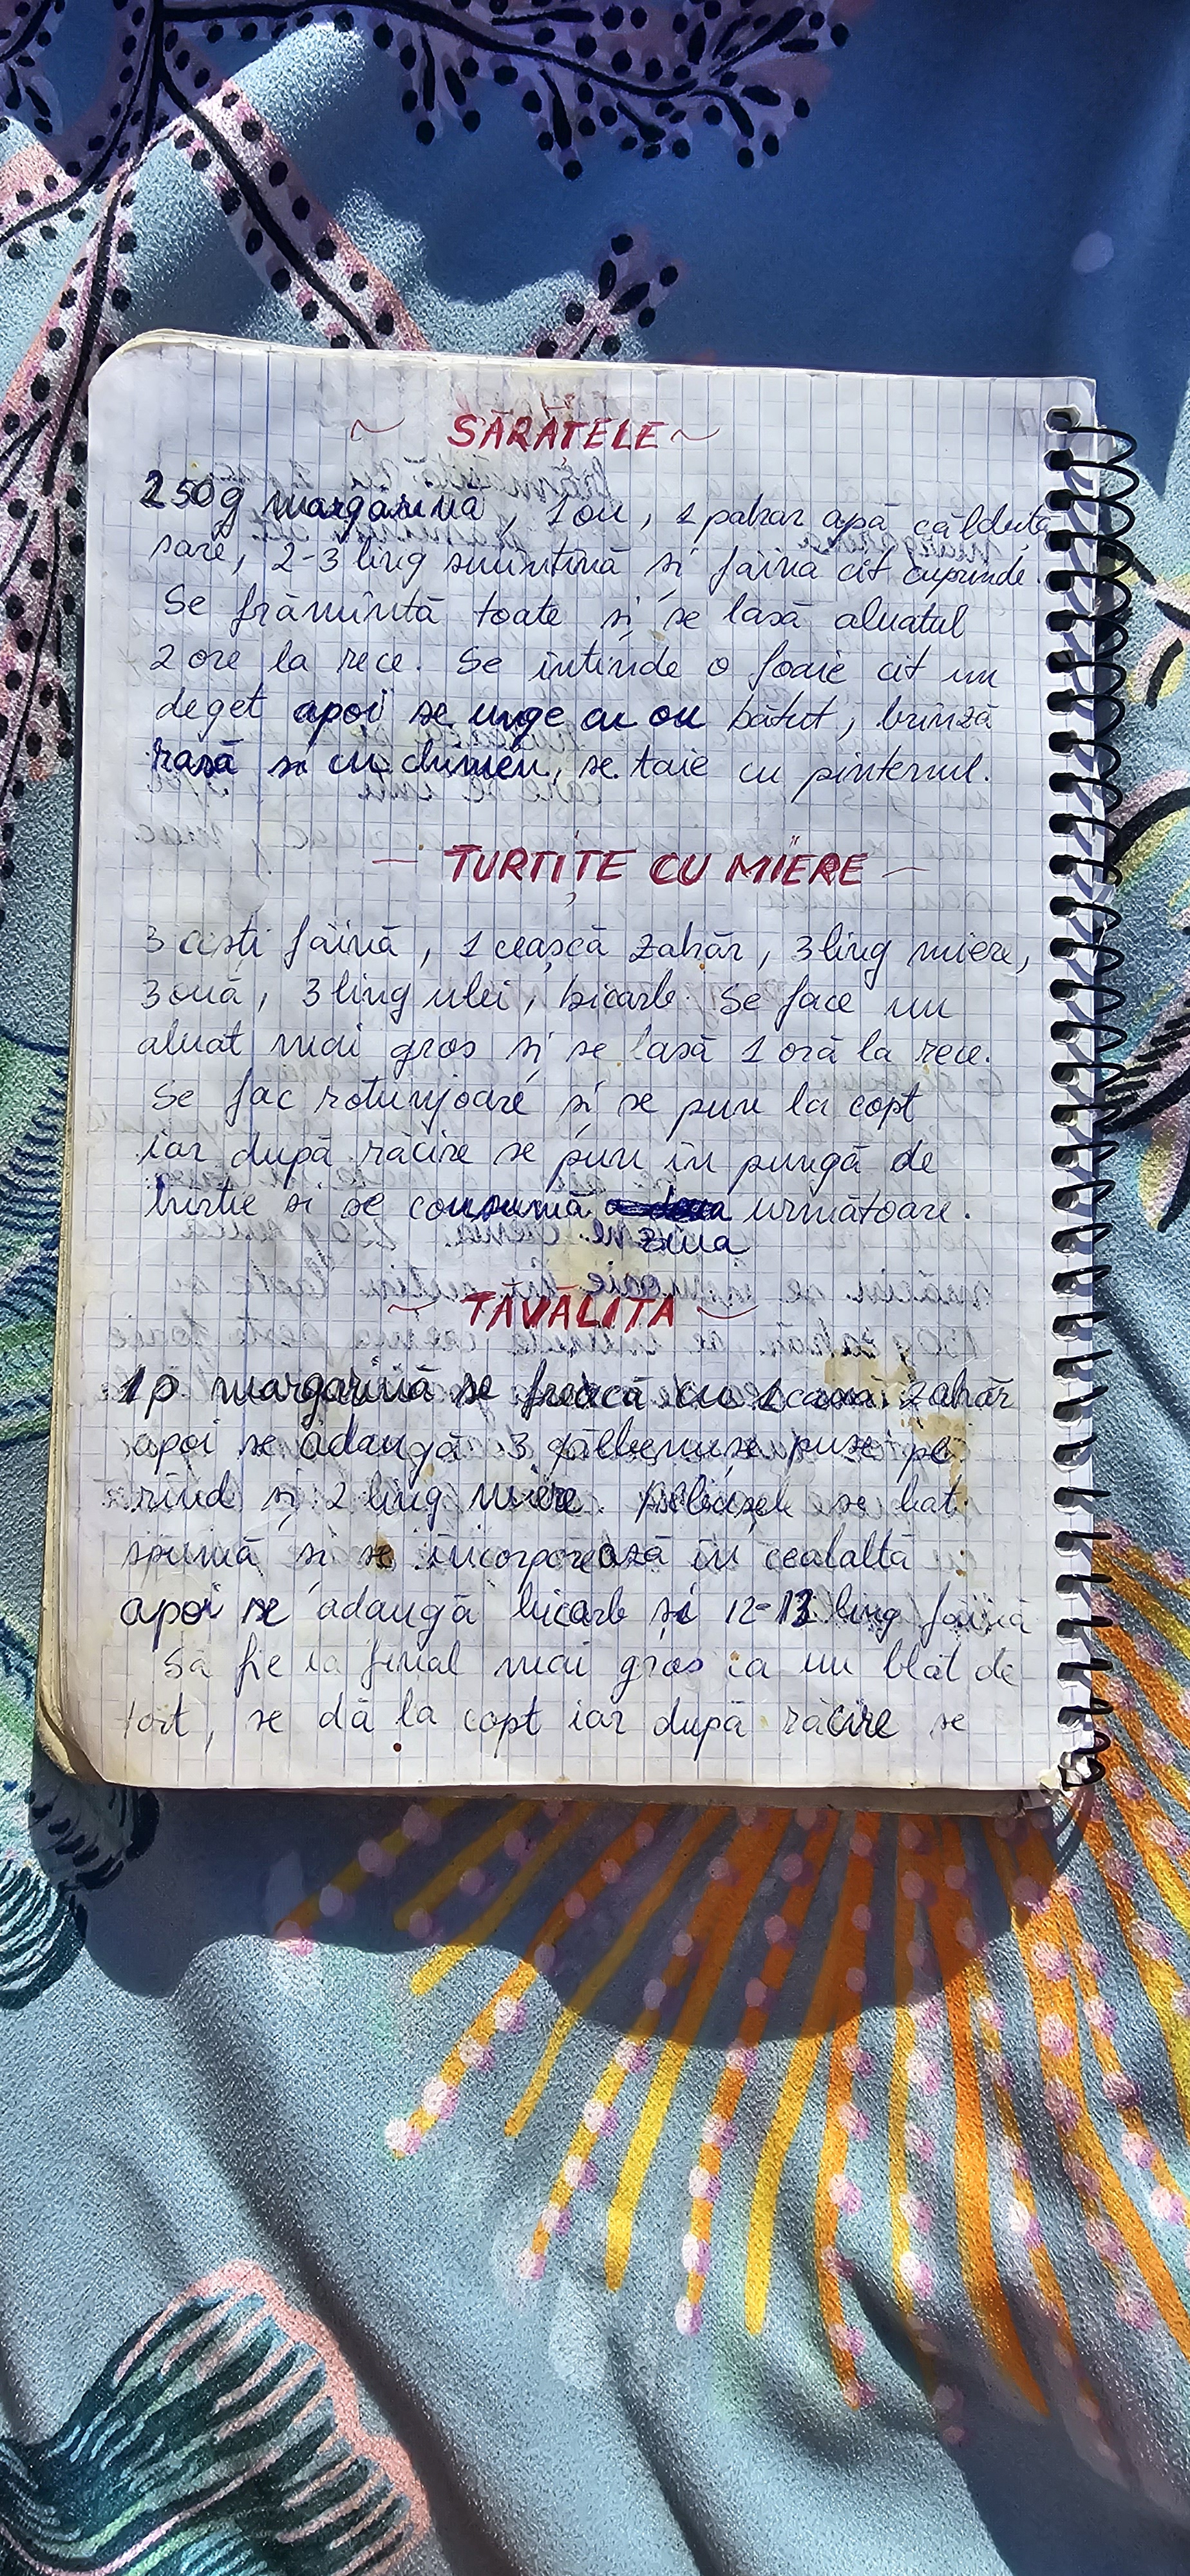 ~ SĂRĂȚELE ~
250g margarină, 1 ou, 1 pahar apă călduță
sare, 2-3 ling smîntînă și făină cît cuprinde.
Se frămîntă toate și se lasă aluatul
2 ore la rece. Se întinde o foaie cît un
deget apoi se unge cu ou bătut, brînză
rasă si cu chimen, se taie cu pintenul.
— TURTIȚE CU MIERE —
3 cești făină, 1 ceașcă zahăr, 3 ling miere,
3 ouă, 3 ling ulei, bicarb. Se face un
aluat mai gros și se lasă 1 oră la rece.
Se fac rotunjoare și se pun la copt
iar după răcire se pun în pungă de
hîrtie si se consumă următoare.
ziua
~ TĂVĂLITA ~
1p margarină se freacă cu 1 cană zahăr
apoi se adaugă 3 gălbenușe puse pe
rînd și 2 ling miere. Albușele se bat
spumă și se încorporează în cealaltă
apoi se adaugă bicarb și 12-13 ling făină
Să fie la final mai gros ca un blat de
tort, se dă la copt iar după răcire se